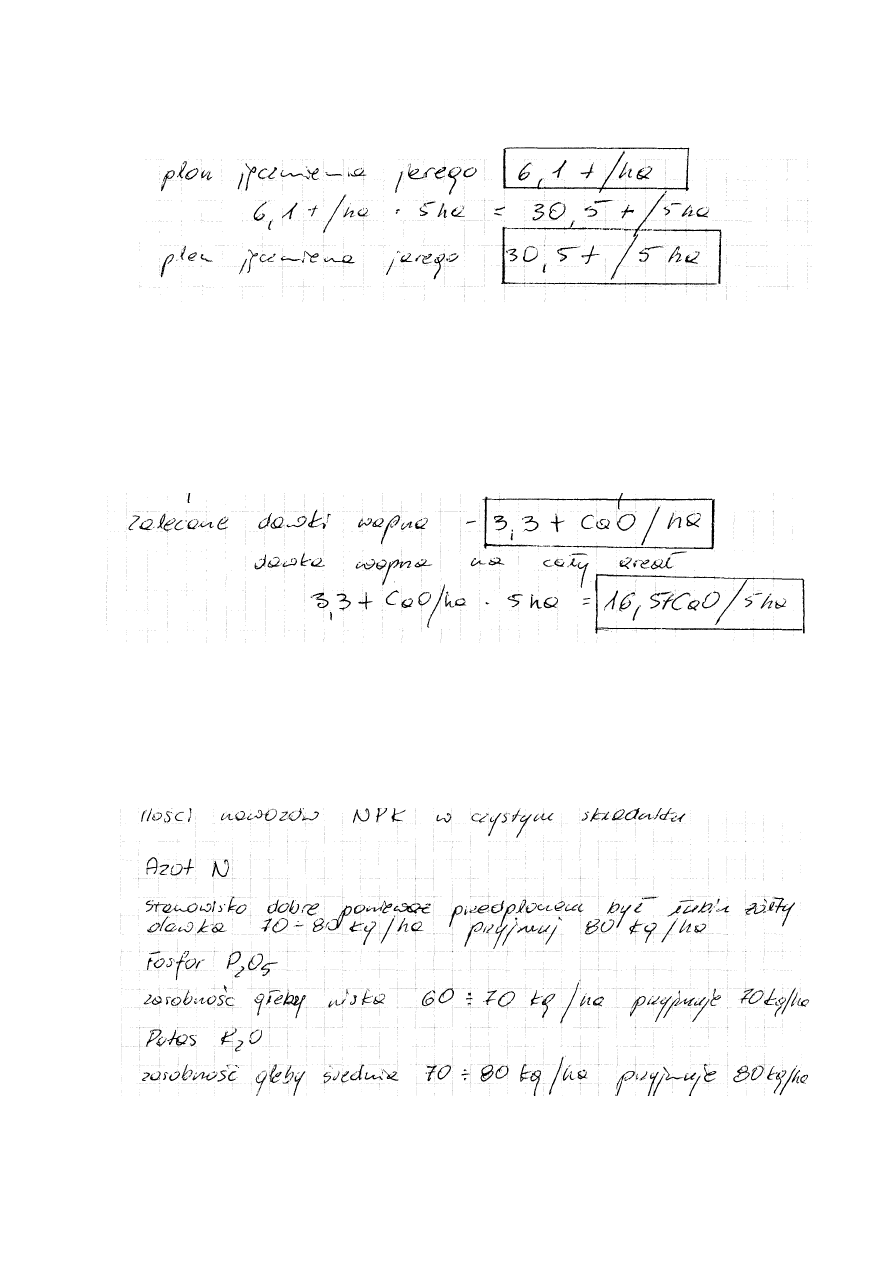 plon jęczmienia jarego 6,1 t/ha
6,1 t/ha · 5 ha = 30,5 t/5 ha
plon jęczmiena jarego 30,5 t/5 ha
zalecane dawki wapna - 3,3 t CaO/ha
dawka wapna na cały areał
3,3 t CaO/ha · 5 ha = 16,5 t CaO/5 ha
Ilości nawozów NPK w czystym składniku
Azot N
stanowisko dobre ponieważ przedplonem był łubin żółty
dawka 70 ÷ 80 kg/ha przyjmuj 80 kg/ha
Fosfor P₂O₅
zasobność gleby niska 60 ÷ 70 kg/ha przyjmuje 70 kg/ha
Potas K₂O
zasobność gleby średnia 70 ÷ 80 kg/ha przyjmuje 80 kg/ha